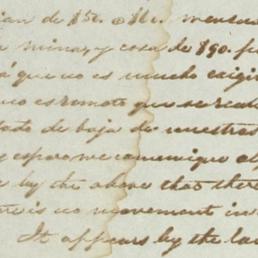 de $50. a $60. mensu
minas, y cosa de $90. p
á que no es mucho exigi
no es remoto que se real
tado de baja de nuestras
y espero me comunique al
by the above that there
is no movement in
It appears by the la